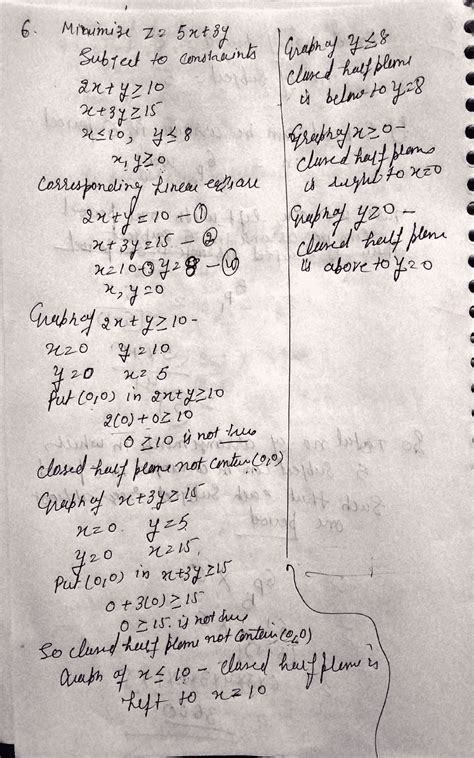 6. Minimize Z = 5x+8y
Subject to constraints
2x+y≥10
x+3y≥15
x≤10, y≤8
x,y≥0
Corresponding Linear are
2x+y=10 - ①
x+3y=15 - ②
x=10-③ y=8 - ④
x,y=0
Graph of 2x+y≥10-
x=0 y=10
y=0 x=5
Put (0,0) in 2x+y≥10
2(0)+0≥10
0≥10 is not true
closed half plane not contain (0,0)
Graph of x+3y≥15
x=0 y=5
y=0 x=15
Put (0,0) in x+3y≥15
0+3(0)≥15
0≥15 is not true
So closed half plane not contain (0,0)
Graph of x≤10 - closed half plane is
left to x=10
Graph of y≤8
closed half plane
is below to y=8
Graph of x≥0-
closed half plane
is right to x=0
Graph of y≥0-
closed half plane
is above to y=0